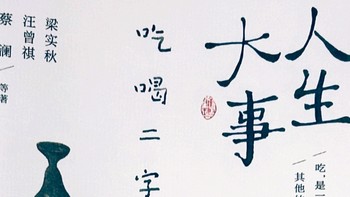 人生
大事
吃喝二字
梁实秋
汪曾祺
蔡澜
等著
吃,是一
其他的